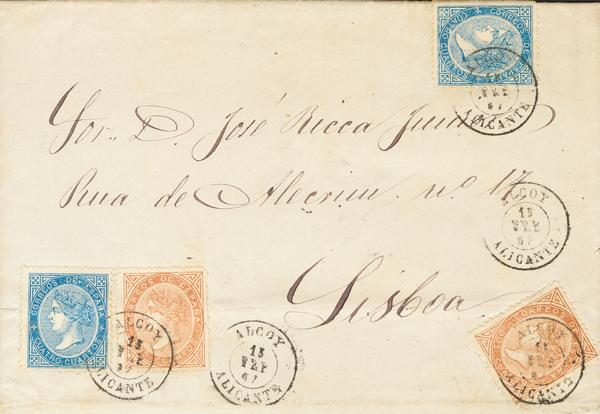 CORREOS DE ESPAÑA
CUATRO CUARTOS
ALICANTE
Sor. D. José Ricca Junior
Rua de Alecrim nº 17
Lisboa
ALCOY
13
FEB
67
ALICANTE
CORREOS DE ESPAÑA
CUATRO CUARTOS
CORREOS DE ESPAÑA
ALCOY
13
FEB
67
ALICANTE
ALCOY
13
FEB
67
ALICANTE
CORREOS DE
ALCOY
ALICANTE